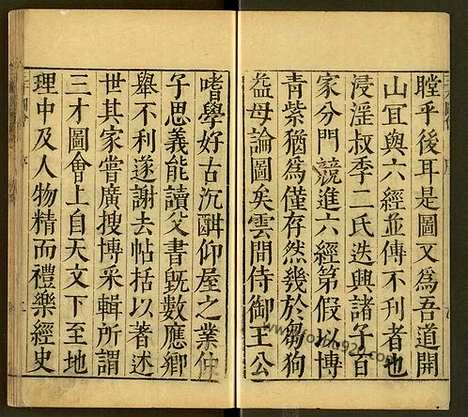 瞠乎後耳是圖又為吾道開
山冝與六經並傳不刊者也
浸淫叔季二氏迭興諸子百
家分門競進六經第假以博
青紫猶為僅存然幾於芻狗
益母論圖矣雲間侍御王公
嗜學好古沉酣仰屋之業仲
子思義能讀父書旣數應鄉
舉不利遂謝去帖括以著述
世其家嘗廣搜博采輯所謂
三才圖會上自天文下至地
理中及人物精而禮樂經史